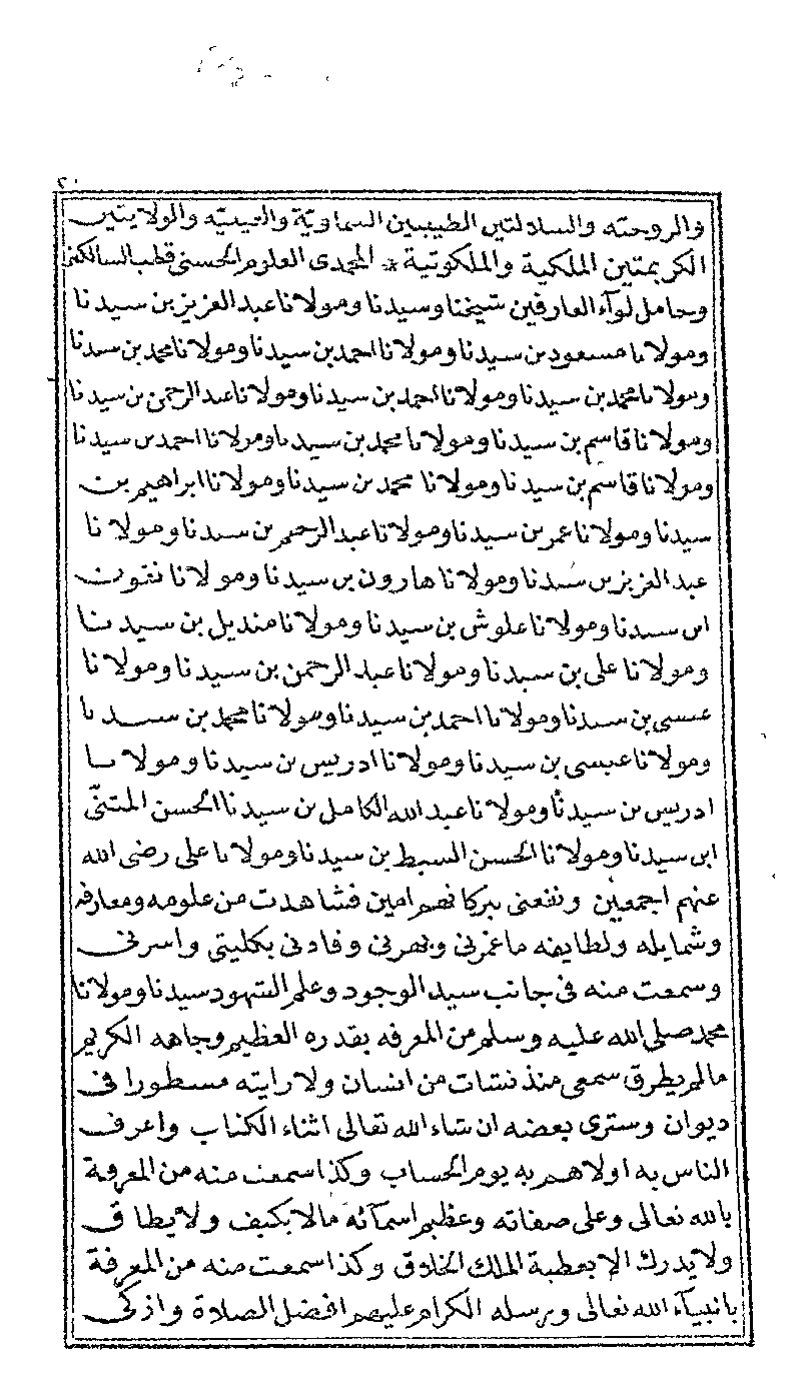 ٢٠
والروحيته والسلالتين الطيبين السماوية والتبيتيه والولايتين
الكريمتين الملكية والملكوتية * المحمدى العلوى الحسنى قطب السالكين
وحامل لوآء العارفين شيخنا وسيدنا ومولانا عبد العزيز بن سيدنا
ومولانا مسعود بن سيدنا ومولانا احمد بن سيدنا ومولانا محمد بن سيدنا
ومولانا محمد بن سيدنا ومولانا احمد بن سيدنا ومولانا عبد الرحمن بن سيدنا
ومولانا قاسم بن سيدنا ومولانا محمد بن سيدنا ومولانا احمد بن سيدنا
ومولانا قاسم بن سيدنا ومولانا محمد بن سيدنا ومولانا ابراهيم بن
سيدنا ومولانا عمر بن سيدنا ومولانا عبد الرحيم بن سيدنا ومولانا
عبد العزيز بن سيدنا ومولانا هارون بن سيدنا ومولانا نتوت
ابن سيدنا ومولانا علوش بن سيدنا ومولانا منديل بن سيدنا
ومولانا على بن سيدنا ومولانا عبد الرحمن بن سيدنا ومولانا
عيسى بن سيدنا ومولانا احمد بن سيدنا ومولانا محمد بن سيدنا
ومولانا عيسى بن سيدنا ومولانا ادريس بن سيدنا ومولانا
ادريس بن سيدنا ومولانا عبد الله الكامل بن سيدنا الحسن المتنّى
ابن سيدنا ومولانا الحسن السبط بن سيدنا ومولانا على رضى الله
عنهم اجمعين ونفعنى ببركاتهم امين فشاهدت من علومه ومعارفه
وشمايله ولطايفه ما غمرنى وبهرنى وقادنى بكليتى واسرنى
وسمعت منه فى جانب سيد الوجود وعلم الشهود سيدنا ومولانا
محمد صلى الله عليه وسلم من المعرفه بقدره العظيم وجاهه الكريم
مالم يطرق سمعى منذ نشات من انسان ولا رايته مسطورا فى
ديوان وسترى بعضه ان شاء الله تعالى اثناء الكتاب واعرف
الناس به اولاهم به يوم الحساب وكذا سمعت منه من المعرفة
بالله تعالى وعلى صفاته وعظيم اسمآئه مالا يكيف ولا يطاق
ولا يدرك الا بعطية الملك الخلاق وكذا سمعت منه من المعرفة
بانبيآء الله تعالى وبرسله الكرام عليهم افضل الصلاة وازكى